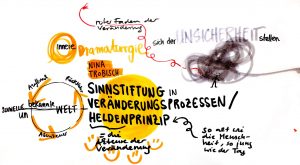 roter Faden der
Veränderung
innere
Dramaturgie
sich der UNSICHERHEIT stellen
NINA
TROBISCH
SINNSTIFTUNG IN
VERÄNDERUNGSPROZESSEN/
HELDENPRINZIP
Aufbruch
bekannte
WELT
Abenteuer
= die
der
Veränderung
so alt wie
die Mensch-
heit, so jung
wie der Tag